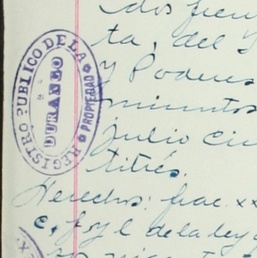 REGISTRO PUBLICO DE LA PROPIEDAD
DURANGO
dos fien
ta, del
y Poderes
mientos
julio ci
titrés.
Derechos: frac. xx
c, f y l de la ley